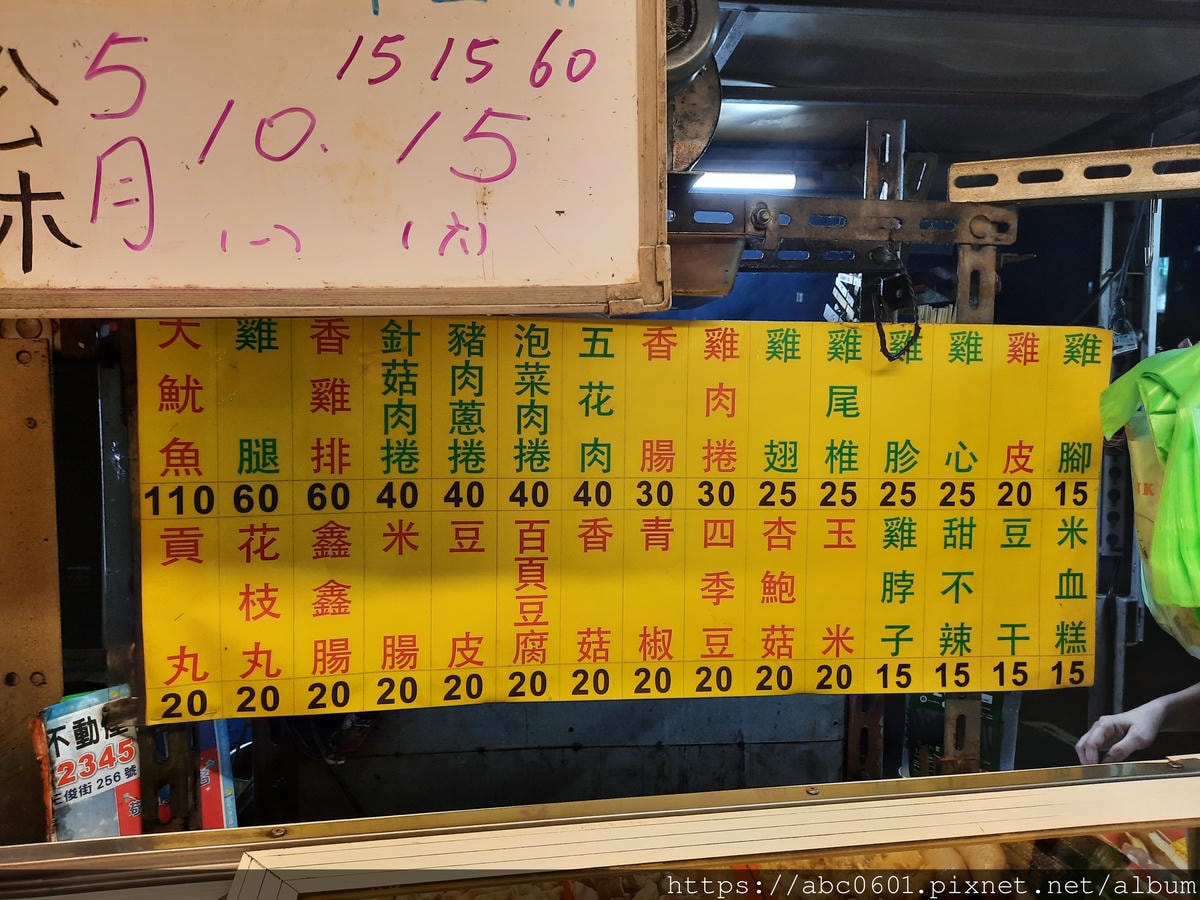 5月
15 15 60
10. 15
(一) (六)
大魷魚 110
雞腿 60
香雞排 60
針菇肉捲 40
豬肉蔥捲 40
泡菜肉捲 40
五花肉 40
香腸 30
雞肉捲 30
雞翅 25
雞尾椎 25
雞胗 25
雞心 25
雞皮 20
雞腳 15
貢丸 20
花枝丸 20
鑫鑫腸 20
米腸 20
豆皮 20
百頁豆腐 20
香菇 20
青椒 20
四季豆 20
杏鮑菇 20
玉米 20
雞脖子 15
甜不辣 15
豆干 15
米血糕 15
不動
2345
俊街 256 號
https://abc0601.pixnet.net/album